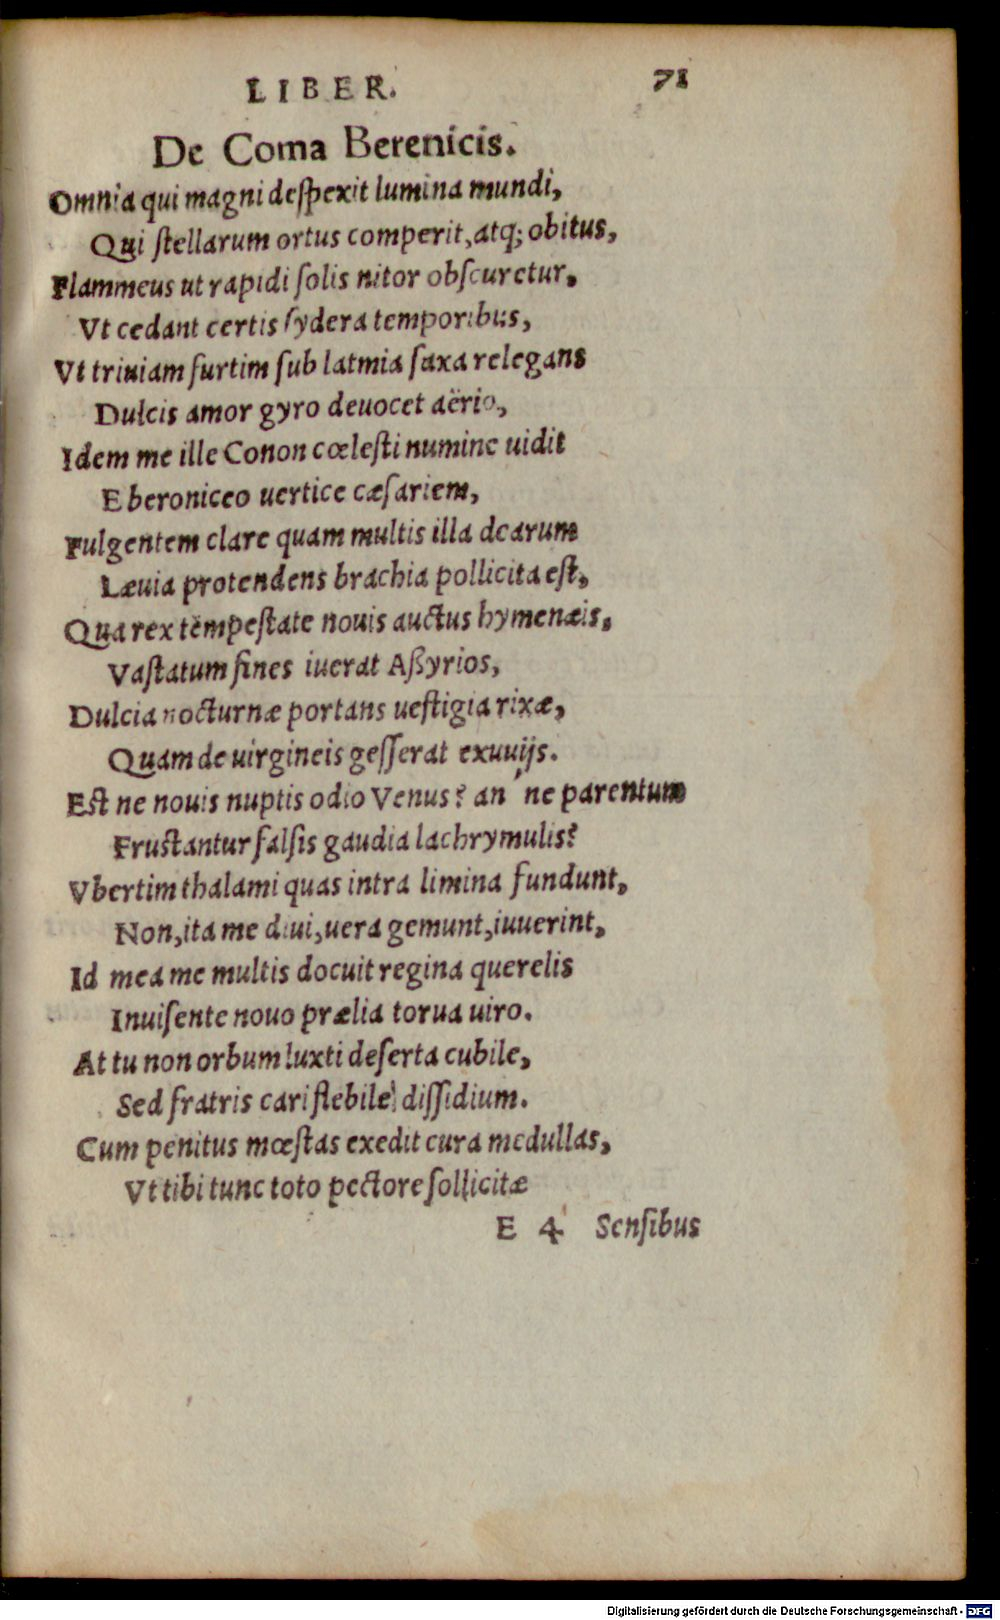 LIBER. 71
De Coma Berenicis.
Omnia qui magni despexit lumina mundi,
Qui stellarum ortus comperit, atq; obitus,
Flammeus ut rapidi solis nitor obscuretur,
Vt cedant certis sydera temporibus,
Vt triuiam furtim sub latmia saxa relegans
Dulcis amor gyro deuocet aërio,
Idem me ille Conon cœlesti numine uidit
E beroniceo uertice cæsariem,
Fulgentem clare quam multis illa dearum
Læuia protendens brachia pollicita est,
Qua rex tempestate nouis auctus hymenæis,
Vastatum fines iuerat Aßyrios,
Dulcia nocturnæ portans uestigia rixæ,
Quam de uirgineis gesserat exuuijs.
Est ne nouis nuptis odio Venus? an 'ne parentum
Frustantur falsis gaudia lachrymulis?
Vbertim thalami quas intra limina fundunt,
Non, ita me diui, uera gemunt, iuuerint,
Id mea me multis docuit regina querelis
Inuisente nouo prælia torua uiro.
At tu non orbum luxti deserta cubile,
Sed fratris cari flebile dissidium.
Cum penitus mœstas exedit cura medullas,
Vt tibi tunc toto pectore sollicitæ
E 4 Sensibus
Digitalisierung gefördert durch die Deutsche Forschungsgemeinschaft - DFG